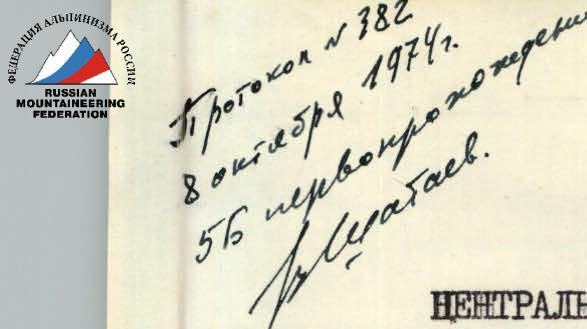 ФЕДЕРАЦИЯ АЛЬПИНИЗМА РОССИИ
RUSSIAN
MOUNTAINEERING
FEDERATION
Протокол N 382
8 октября 1974г.
5Б первопрохождени
Шатаев.
ЦЕНТРАЛЬ